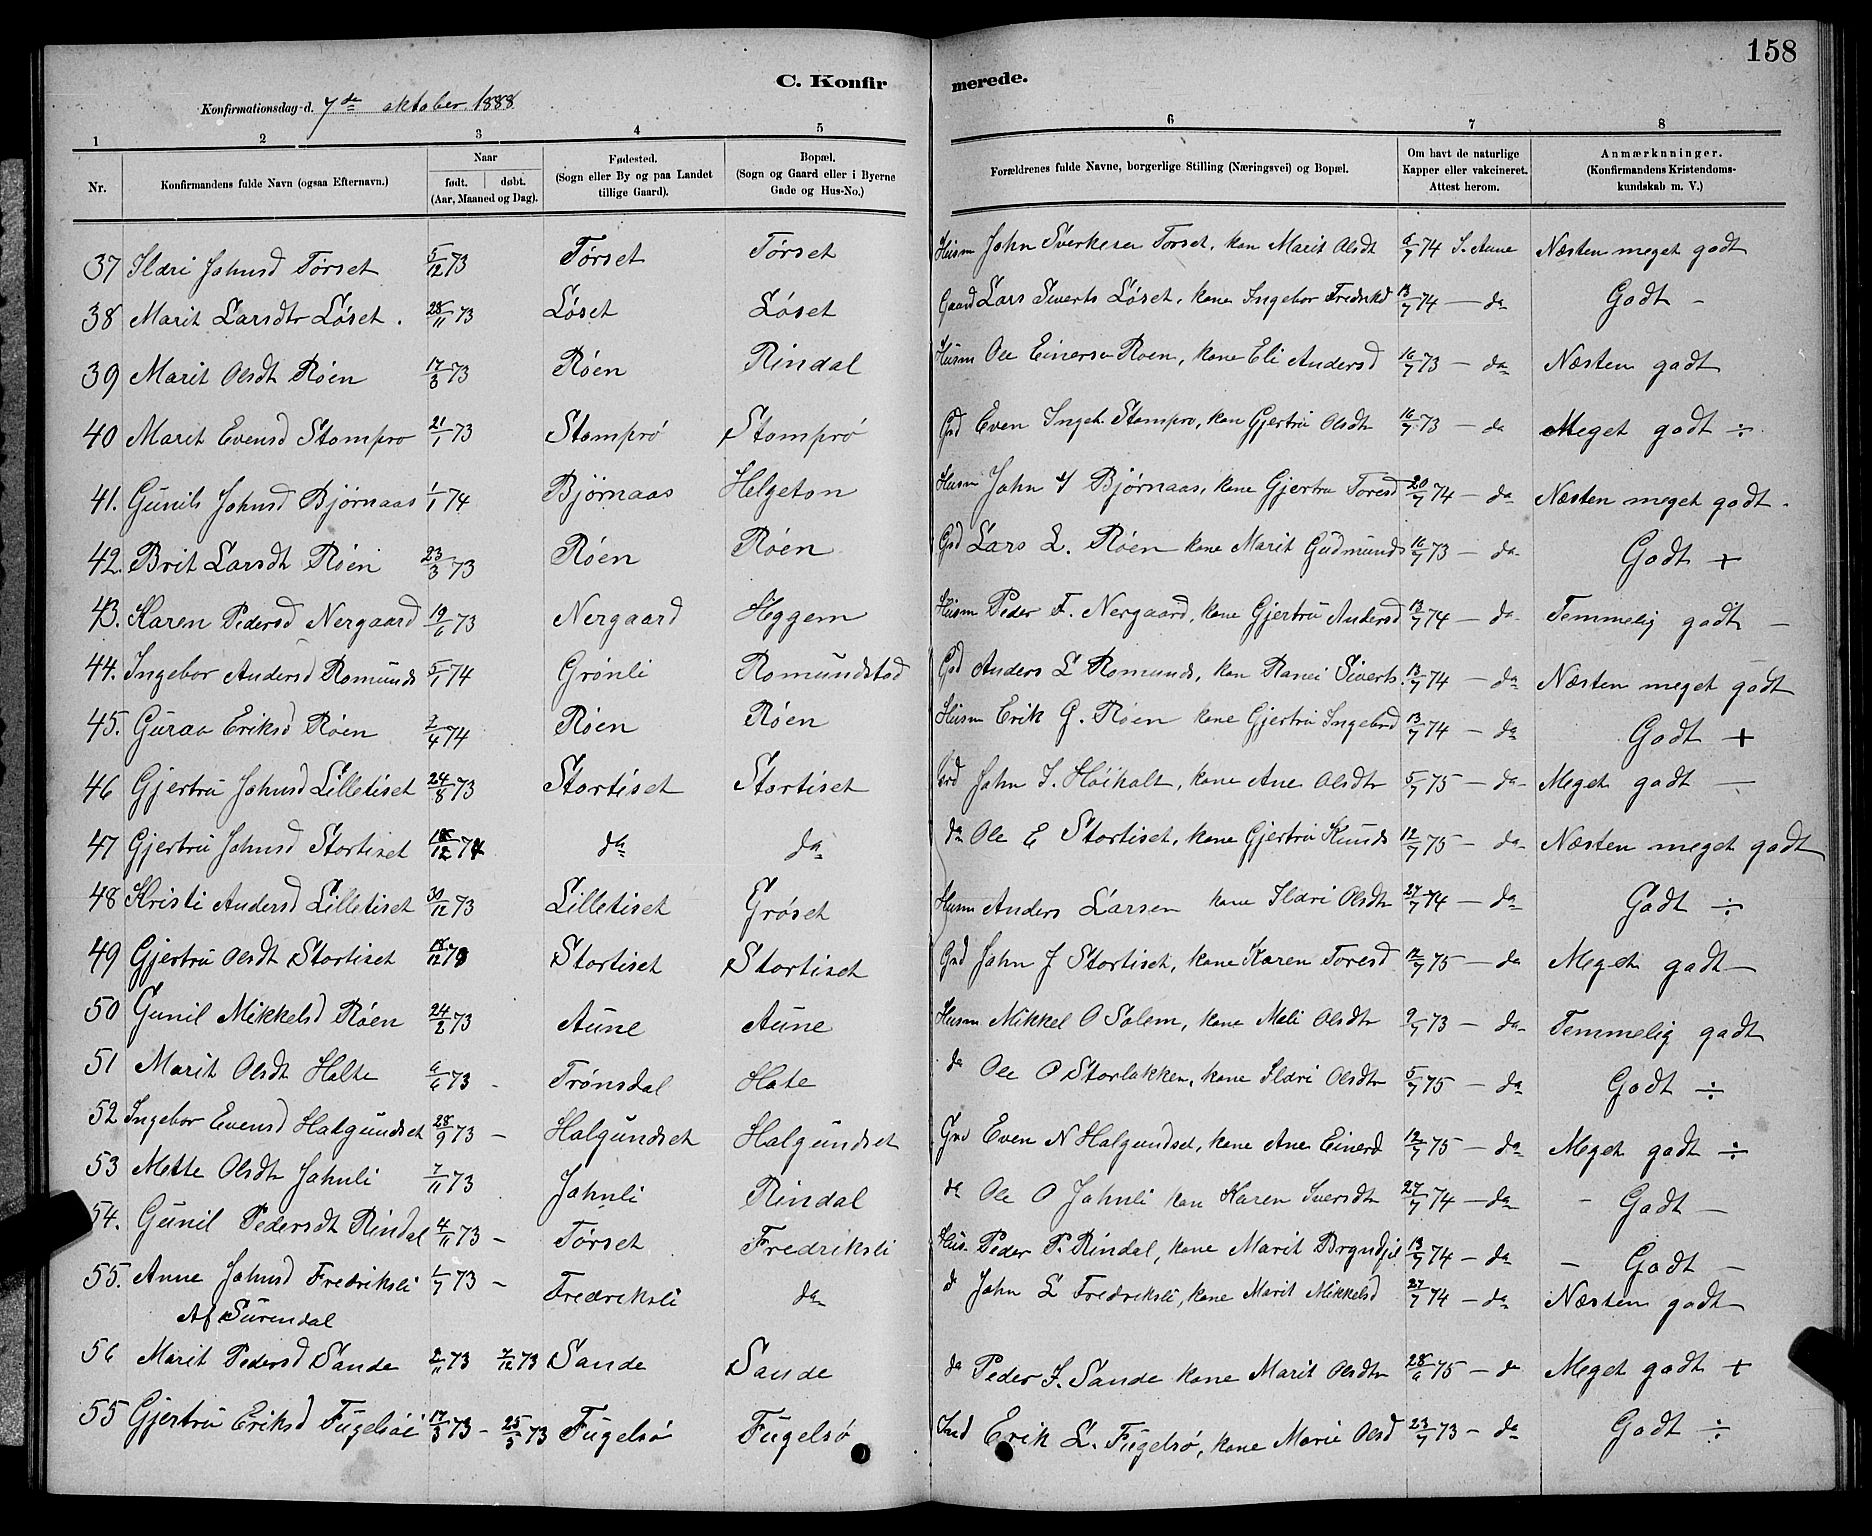 158
C. Konfirmerede.
Konfirmationsdag d. 7de oktober 1888
1 2 3 4 5 6 7 8
Nr. | Konfirmandens fulde Navn (ogsaa Efternavn.) | Naar født. døbt. (Aar, Maaned og Dag). | Fødested. (Sogn eller By og paa Landet tillige Gaard). | Bopæl. (Sogn og Gaard eller i Byerne Gade og Hus-No.) | Forældrenes fulde Navne, borgerlige Stilling (Næringsvei) og Bopæl. | Om havt de naturlige Kapper eller vakcineret. Attest herom. | Anmærknninger. (Konfirmandens Kristendomskundskab m. V.)
37 Ildri Johnsd Tørset 5/12 73 Tørset Tørset Husm John Sverkesen Torset, kon Marit Olsdt 6/7 74 S. Aune Næsten meget godt
38 Marit Larsdtr Løset. 28/11 73 Løset Løset Gaard Lars Siverts Løset, kone Ingebor Fredrikd 13/7 74 — do Godt -
39 Marit Olsdt Røen 17/3 73 Røen Rindal Husm Ole Einersn Roen, kone Eli Andersd 16/7 73 — do Næsten godt
40 Marit Evensd Stompro 21/1 73 Stomprø Stomprø Grd Even Ingeb. Stompro, kon Gjertru Olsdtr 16/7 73 — do Meget godt ÷
41. Gunils Johnsd Bjørnaas 1/1 74 Bjørnaas Helgeton Husm John Bjørnaas, kone Gjertru Toresd 20/7 74 — do Næsten meget godt -
42. Brit Larsdt Røen 23/3 73 Røen Røen Grd Lars L. Røen kone Marit Gudmunds 16/7 73 — do Godt +
43. Karen Pedersd Nergaard 19/6 73 Nergaard Heggem Husm Peder F. Nergaard, kone Gjertru Andersd 13/7 74 — do Temmelig godt —
44. Ingebor Andersd Romunds 5/1 74 Grønli Romundstad Grd Anders L Romunds, kon Ranei Siverts. 13/7 74 — do Næsten meget godt
45. Guraa Eriksd Røen 2/4 74 Røen Røen Husm Erik G. Røen kone Gjertru Ingebrd 13/7 74 — do Godt +
46 Gjertru Johnsd Lilletiset 24/8 73 Stortiset Stortiset Grd John I. Høiholt, kone Ane Olsdtr 5/7 75 — do Meget godt —
47 Gjertru Johnsd Stortiset 18/12 74 do do do Ole E Stortiset, kone Gjertru Kunds 12/7 75 — do Næsten meget godt
48 Kristi Andersd Lilletiset 30/12 73 Lilletiset Grøset Husm Anders Larsen kone Ildri Olsdtr 27/7 74 — do Godt ÷
49 Gjertru Olsdt Stortiset 18/12 73 Stortiset Stortiset Grd John J Stortiset, kone Karen Toresd 12/7 75 — do Meget godt —
50 Gunil Mikkelsd Røen 24/2 73 Aune Aune Husm Mikkel O Solem, kone Mali Olsdtr 9/7 73 — do Temmelig godt
51 Marit Olsdt Holte 6/6 73 - Trønsdal Hote do Ole O Storløkken, kone Ildri Olsdtr 5/7 75 — do Godt ÷
52 Ingebor Evensd Halgundset 28/9 73 - Halgundset Halgundset Grd Even N Halgundset, kone Ane Einerd 12/7 75 — do Meget godt ÷
53 Mette Olsdtr Johnli 7/11 73 Johnli Rindal do Ole O Johnli kon Karen Iversdtr 27/7 74 — do - Godt —
54. Gunil Pedersdt Rindal 4/11 73 - Torset Fredriksli Hus. Peder P. Rindal, kone Marit Brgndjil 13/7 74 — do - Godt —
55. Anne Johnsd Fredriksli 1/7 73 - Fredriksli do d John L Fredriksli, kone Marit Mikkelsd 27/7 74 — do Næsten godt
Af Surendal
56 Marit Pedersd Sande 2/11 73 7/12 73 Sande Sande do Peder J. Sande kone Marit Olsdtr 28/6 75 — do Meget godt +
55 Gjertru Eriksd Fugelsøi 17/3 73 - 25/5 73 Fugelsø Fugelsø Ind Erik L. Fugelsø, kone Marie Olsd 23/7 73 - do Godt ÷